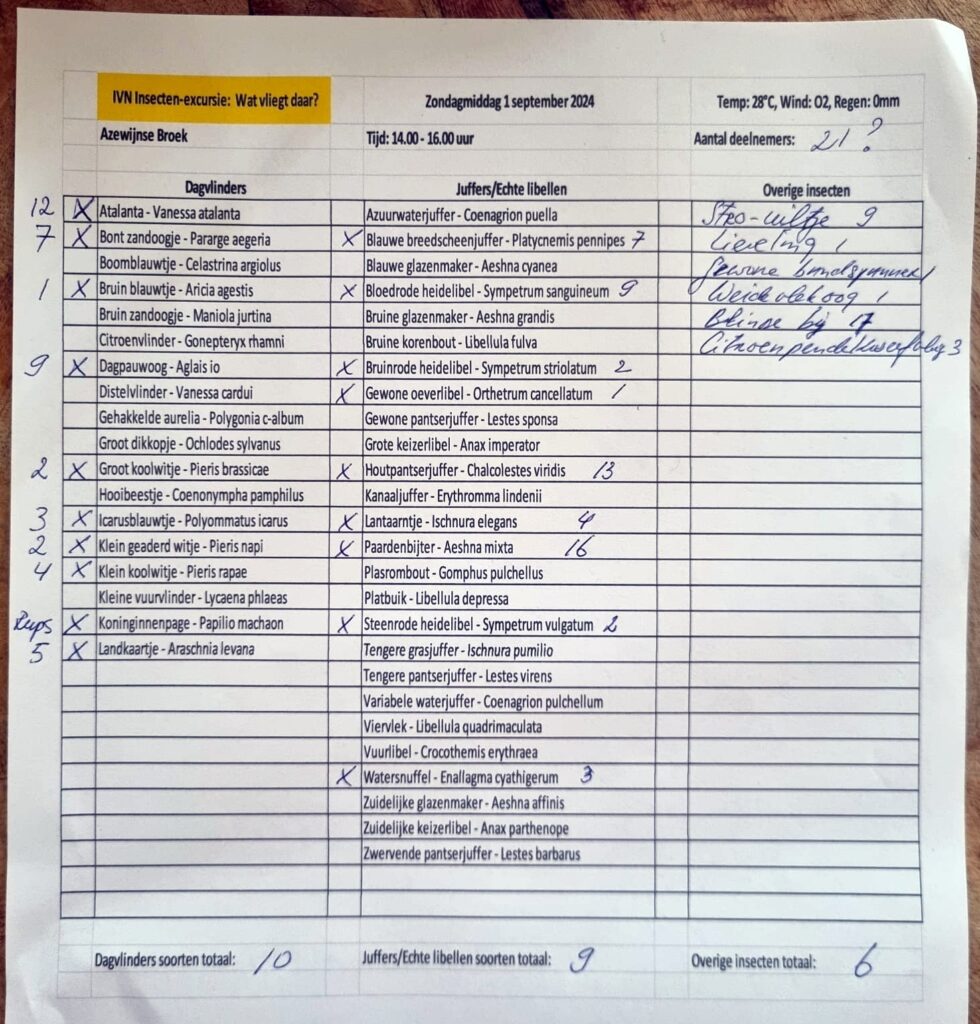 IVN Insecten-excursie: Wat vliegt daar? Zondagmiddag 1 september 2024 Temp: 28°C, Wind: O2, Regen: 0mm
Azewijnse Broek Tijd: 14.00 - 16.00 uur Aantal deelnemers: 21?
Dagvlinders Juffers/Echte libellen Overige insecten
12 X Atalanta - Vanessa atalanta Azuurwaterjuffer - Coenagrion puella Stro-uiltje 9
7 X Bont zandoogje - Pararge aegeria X Blauwe breedscheenjuffer - Platycnemis pennipes 7 Lieveling 1
Boomblauwtje - Celastrina argiolus Blauwe glazenmaker - Aeshna cyanea Gewone 1
1 X Bruin blauwtje - Aricia agestis X Bloedrode heidelibel - Sympetrum sanguineum 9 Weidevlekoog 1
Bruin zandoogje - Maniola jurtina Bruine glazenmaker - Aeshna grandis Blinde bij 7
Citroenvlinder - Gonepteryx rhamni Bruine korenbout - Libellula fulva Citroenpendelzweefvlieg 3
9 X Dagpauwoog - Aglais io X Bruinrode heidelibel - Sympetrum striolatum 2
Distelvlinder - Vanessa cardui X Gewone oeverlibel - Orthetrum cancellatum 1
Gehakkelde aurelia - Polygonia c-album Gewone pantserjuffer - Lestes sponsa
Groot dikkopje - Ochlodes sylvanus Grote keizerlibel - Anax imperator
2 X Groot koolwitje - Pieris brassicae X Houtpantserjuffer - Chalcolestes viridis 13
Hooibeestje - Coenonympha pamphilus Kanaaljuffer - Erythromma lindenii
3 X Icarusblauwtje - Polyommatus icarus X Lantaarntje - Ischnura elegans 4
2 X Klein geaderd witje - Pieris napi X Paardenbijter - Aeshna mixta 16
4 X Klein koolwitje - Pieris rapae Plasrombout - Gomphus pulchellus
Kleine vuurvlinder - Lycaena phlaeas Platbuik - Libellula depressa
Rups X Koninginnenpage - Papilio machaon X Steenrode heidelibel - Sympetrum vulgatum 2
5 X Landkaartje - Araschnia levana Tengere grasjuffer - Ischnura pumilio
Tengere pantserjuffer - Lestes virens
Variabele waterjuffer - Coenagrion pulchellum
Viervlek - Libellula quadrimaculata
Vuurlibel - Crocothemis erythraea
X Watersnuffel - Enallagma cyathigerum 3
Zuidelijke glazenmaker - Aeshna affinis
Zuidelijke keizerlibel - Anax parthenope
Zwervende pantserjuffer - Lestes barbarus
Dagvlinders soorten totaal: 10 Juffers/Echte libellen soorten totaal: 9 Overige insecten totaal: 6